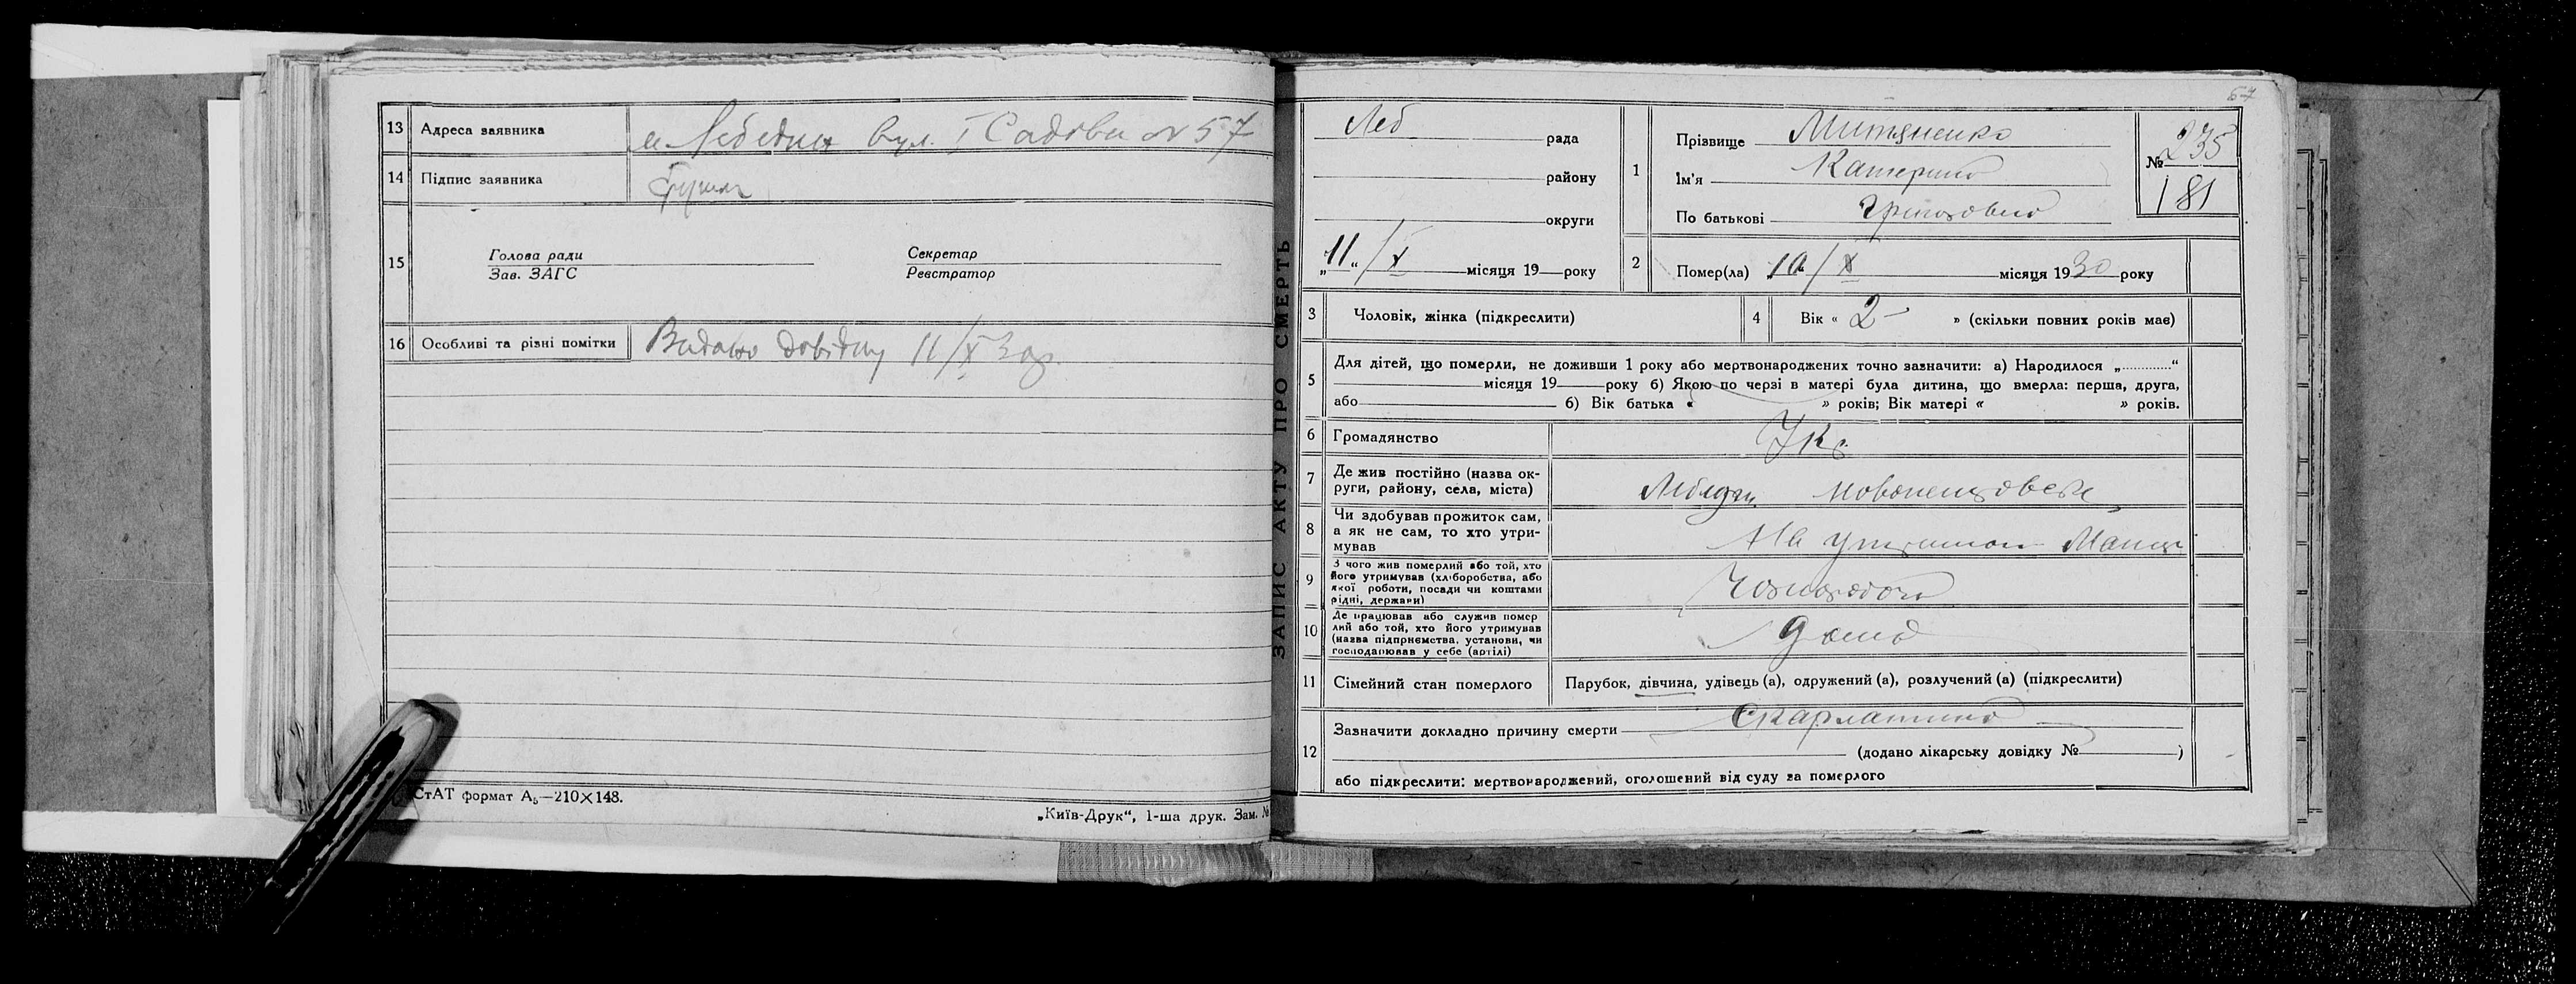 13 Адреса заявника м Лебедин вул. I Садова № 57
14 Підпис заявника
15 Голова ради Секретар
Зав. ЗАГС Реєстратор
16 Особливі та різні помітки Видано довідку 11/X 30р.
СтАТ формат А5—210×148.
„Київ-Друк“, 1-ша друк. Зам. №
ЗАПИС АКТУ ПРО СМЕРТЬ
67
Леб рада
району
округи
„11“/X місяця 19 року
1 Прізвище Митяненко
Ім'я Катерина
По батькові
№ 235
181
2 Помер(ла) 10/X місяця 1930 року
3 Чоловік, жінка (підкреслити)
4 Вік « 2 » (скільки повних років має)
5 Для дітей, що померли, не доживши 1 року або мертвонароджених точно зазначити: а) Народилося „............“
місяця 19 року б) Якою по черзі в матері була дитина, що вмерла: перша, друга,
або б) Вік батька « » років; Вік матері « » років.
6 Громадянство Укр.
7 Де жив постійно (назва ок-
руги, району, села, міста) Лебедин
8 Чи здобував прожиток сам,
а як не сам, то хто утри-
мував На Матери
9 З чого жив померлий або той, хто
його утримував (хліборобства, або
якої роботи, посади чи коштами
рідні, держави)
10 Де працював або служив помер
лий або той, хто його утримував
(назва підприємства, установи, чи
господарював у себе (артілі) дома
11 Сімейний стан померлого Парубок, дівчина, удівець (а), одружений (а), розлучений (а) (підкреслити)
12 Зазначити докладно причину смерти Скарлатина
(додано лікарську довідку № )
або підкреслити: мертвонароджений, оголошений від суду за померлого